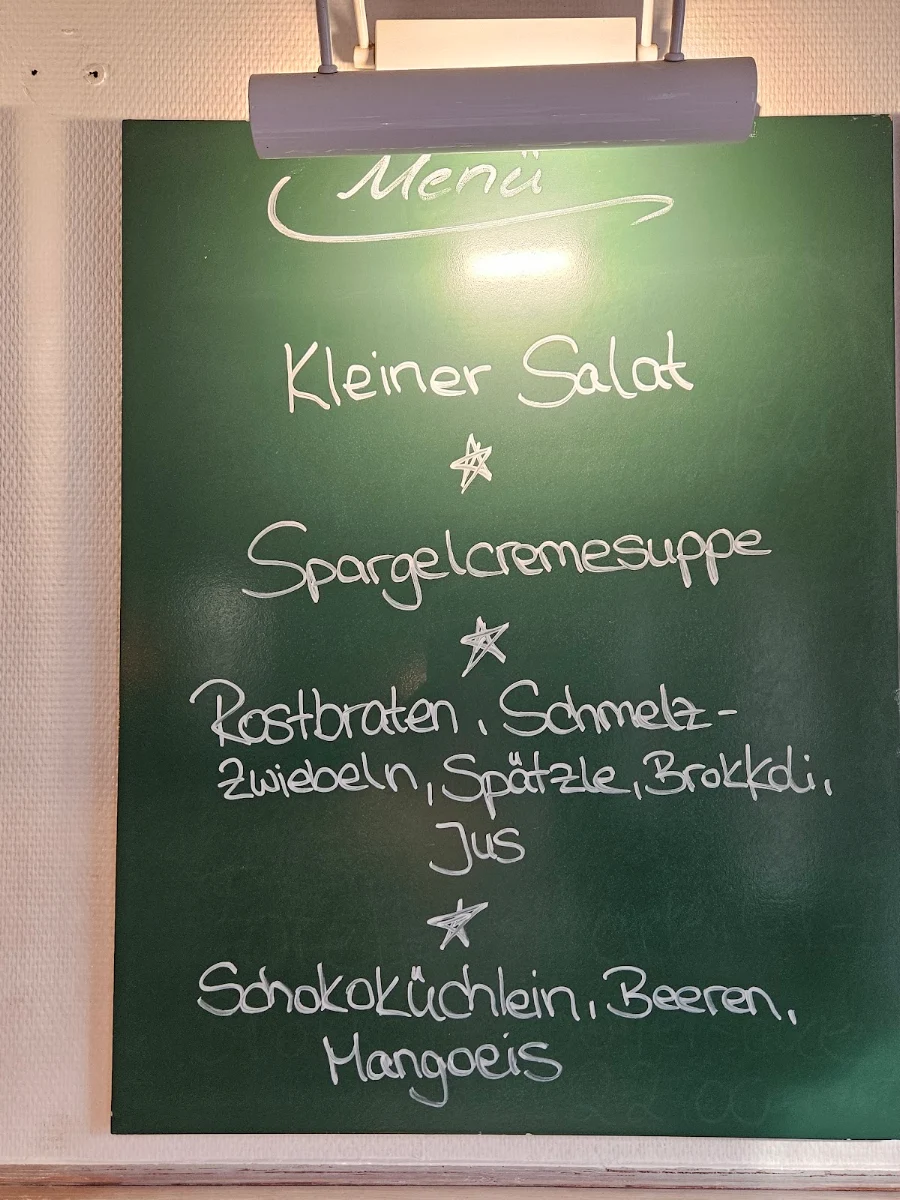 Menü
Kleiner Salat
Spargelcremesuppe
Rostbraten, Schmelz-
zwiebeln, Spätzle, Brokkoli,
Jus
Schokoküchlein, Beeren,
Mangoeis